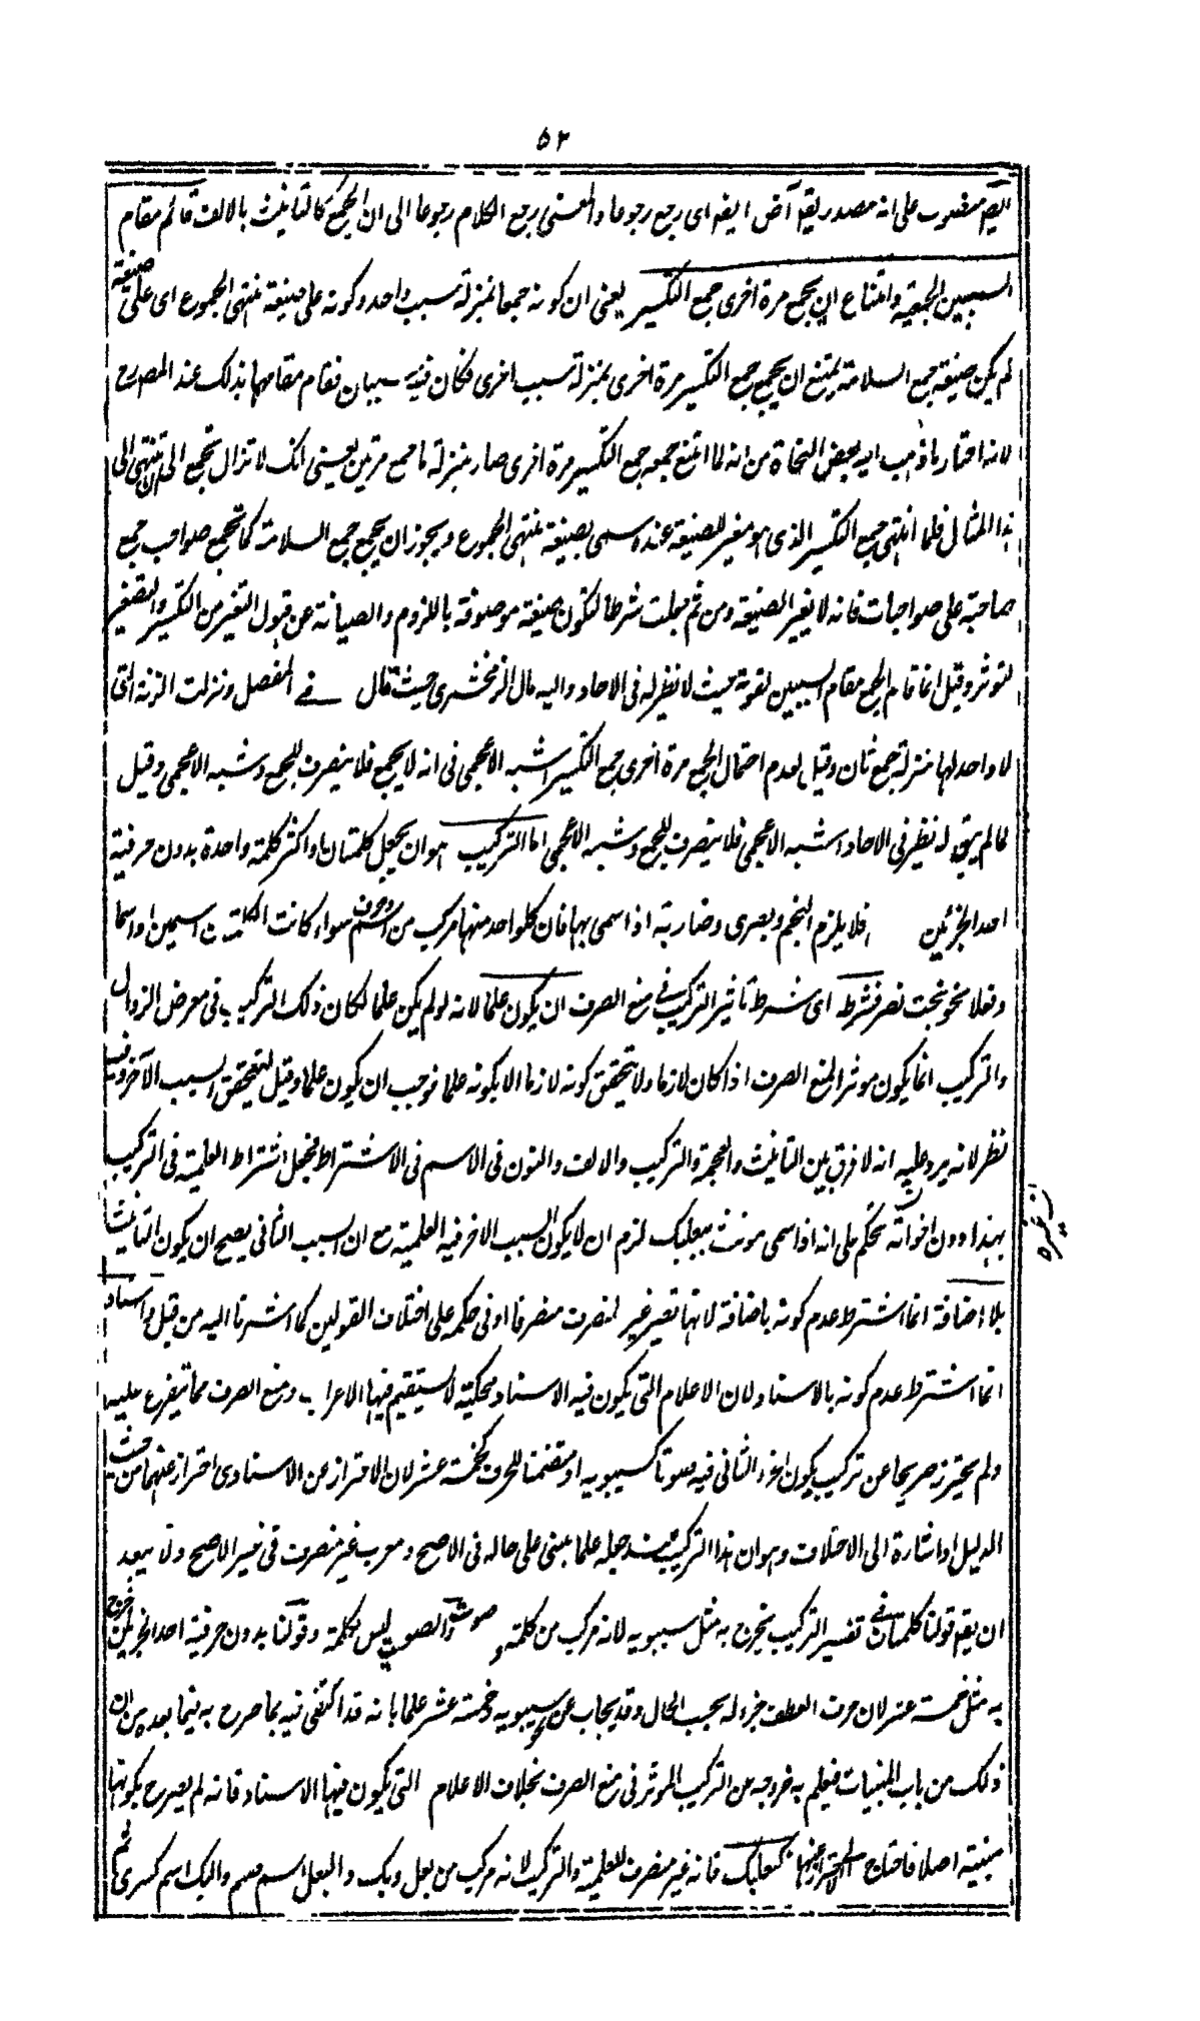 ٥٢
ايضا منصوب على انه مصدر يقم آض ايضه اى رجع رجوعا والمعنى رجع الكلام رجوعا الى ان الجمع كالتانيث بالالف قائم مقام
السببين الجمعية وامتناع ان يجمع مرة اخرى جمع التكسير يعنى ان كونه جمعا بمنزلة سبب واحد وكونه على صيغة منتهى الجموع اى على صيغة
لم يكن صيغة جمع السلامة يمتنع ان يجمع جمع التكسير مرة اخرى بمنزلة سبب اخرى فكان فيه سببان فقام مقامهما بذلك عند المصرح
لانه اختار ما ذهب اليه بعض النحاة من انه لما امتنع جمعه جمع التكسير مرة اخرى صار بمنزلة ما جمع مرتين يعنى انك لا تزال تجمع الى ان تنتهى الى
هذا المثال فلما انتهى جمع التكسير الذى هو مغير للصيغة عنده سمى بصيغة منتهى الجموع ويجوز ان يجمع جمع السلامة كما تجمع صواحب جمع
صاحبة على صواحبات فانه لا يغير الصيغة ومن ثم جعلت شرطا لتكون صيغة موصوفة باللزوم والصيانة عن قبول التغير من التكسير والتصغير
لتوثر وقيل انما قام الجمع مقام السببين لقوته حيث لا نظير له فى الاحاد واليه مال الزمخشرى حيث قال فى المفصل ونزلت الزنة التى
لا واحد لها منزلة جمع ثان وقيل لعدم احتمال الجمع مرة اخرى جمع التكسير اشبه الاعجمى فى انه لا يجمع فلا ينصرف للجمع وشبه الاعجمى وقيل
لما لم يبق له نظير فى الاحاد اشبه الاعجمى فلا ينصرف للجمع وشبه الاعجمى اما التركيب هو ان يجعل كلمتان او اكثر كلمة واحدة بدون حرفية
احد الجزئين فلا يلزم النجم وبصرى وضاربة اذا سمى بها فان كلواحد منها مركب من اسم وحرف سواء كانت الكلمتين اسمين او اسما
وفعلا نحو بخت نصر فشرطه اى شرط تاثير التركيب فى منع الصرف ان يكون علما لانه لو لم يكن علما لكان ذلك التركيب فى معرض الزوال
والتركيب انما يكون موثرا لمنع الصرف اذا كان لازما ولا يتحقق كونه لازما الا بكونه علما فوجب ان يكون علما وقيل ليتحقق السبب الآخر وفيه
نظر لانه يرد عليه انه لا فرق بين التانيث والعجمة والتركيب والالف والنون فى الاسم فى الاشتراط فجعل اشتراط العلمية فى التركيب
بهذا دون اخواته تحكم على انه اذا سمى مونث ببعلبك لزم ان لا يكون السبب الاخر فيه العلمية مع ان السبب الثانى يصح ان يكون التانيث
بلا اضافة انما اشترط عدم كونه باضافة لانها تصير غير المنصرف منصرفا او فى حكمه على اختلاف القولين كما اشرنا اليه من قبل واسناد
انما اشترط عدم كونه بالاسناد لان الاعلام التى يكون فيه الاسناد محكية لا يستقيم فيها الاعراب ومنع الصرف مما يتفرع عليه
ولم يحترز صريحا عن تركيب يكون الجزء الثانى فيه صوتا كسيبويه او متضمنا للحرف كخمسة عشر لان الاحتراز عن الاسنادى احتراز عنهما من حيث
الدليل او اشارة الى الاختلاف وهو ان هذا التركيب بعد جعله علما مبنى على حاله فى الاصح ومعرب غير منصرف فى غير الاصح ولا يبعد
ان يقم قولنا كلمتان فى تفسير التركيب يخرج به مثل سيبويه لانه مركب من كلمة وصوت والصوت ليس بكلمة وقولنا بدون حرفية احد الجزئين يخرج
به مثل خمسة عشر لان حرف العطف جزء له بحسب الحال وقد يجاب عن نحو سيبويه وخمسة عشر علما بانه قد اكتفى فيه بما صرح به فيما بعد من ان
ذلك من باب المبنيات فيعلم به خروجه عن التركيب الموثر فى منع الصرف بخلاف الاعلام التى يكون فيها الاسناد فانه لم يصرح بكونها
مبنية اصلا فاحتاج الى الاحتراز عنها كبعلبك فانه غير منصرف للعلمية والتركيب لانه مركب من بعل وبك والبعل اسم صنم والبك اسم كسرى ثم